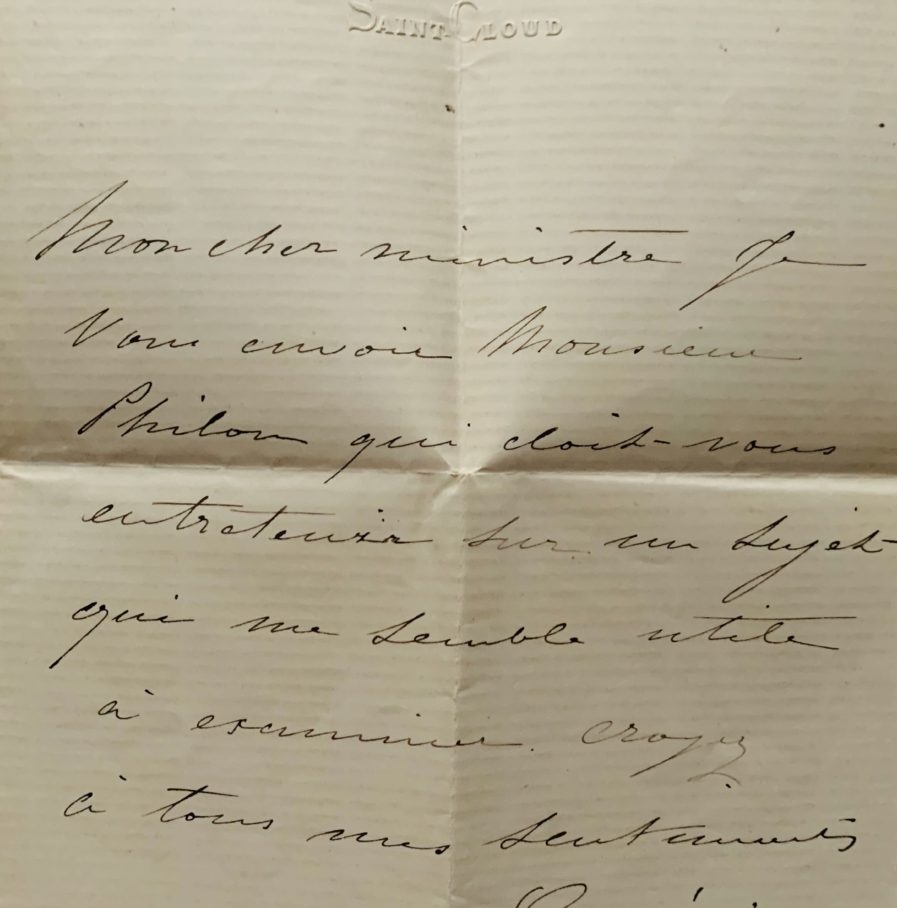 SAINT CLOUD
Mon cher ministre Je
Vous envoie Monsieur
Philon qui doit vous
entretenir sur un sujet
qui me semble utile
à examiner. Croyez
à tous mes sentiments